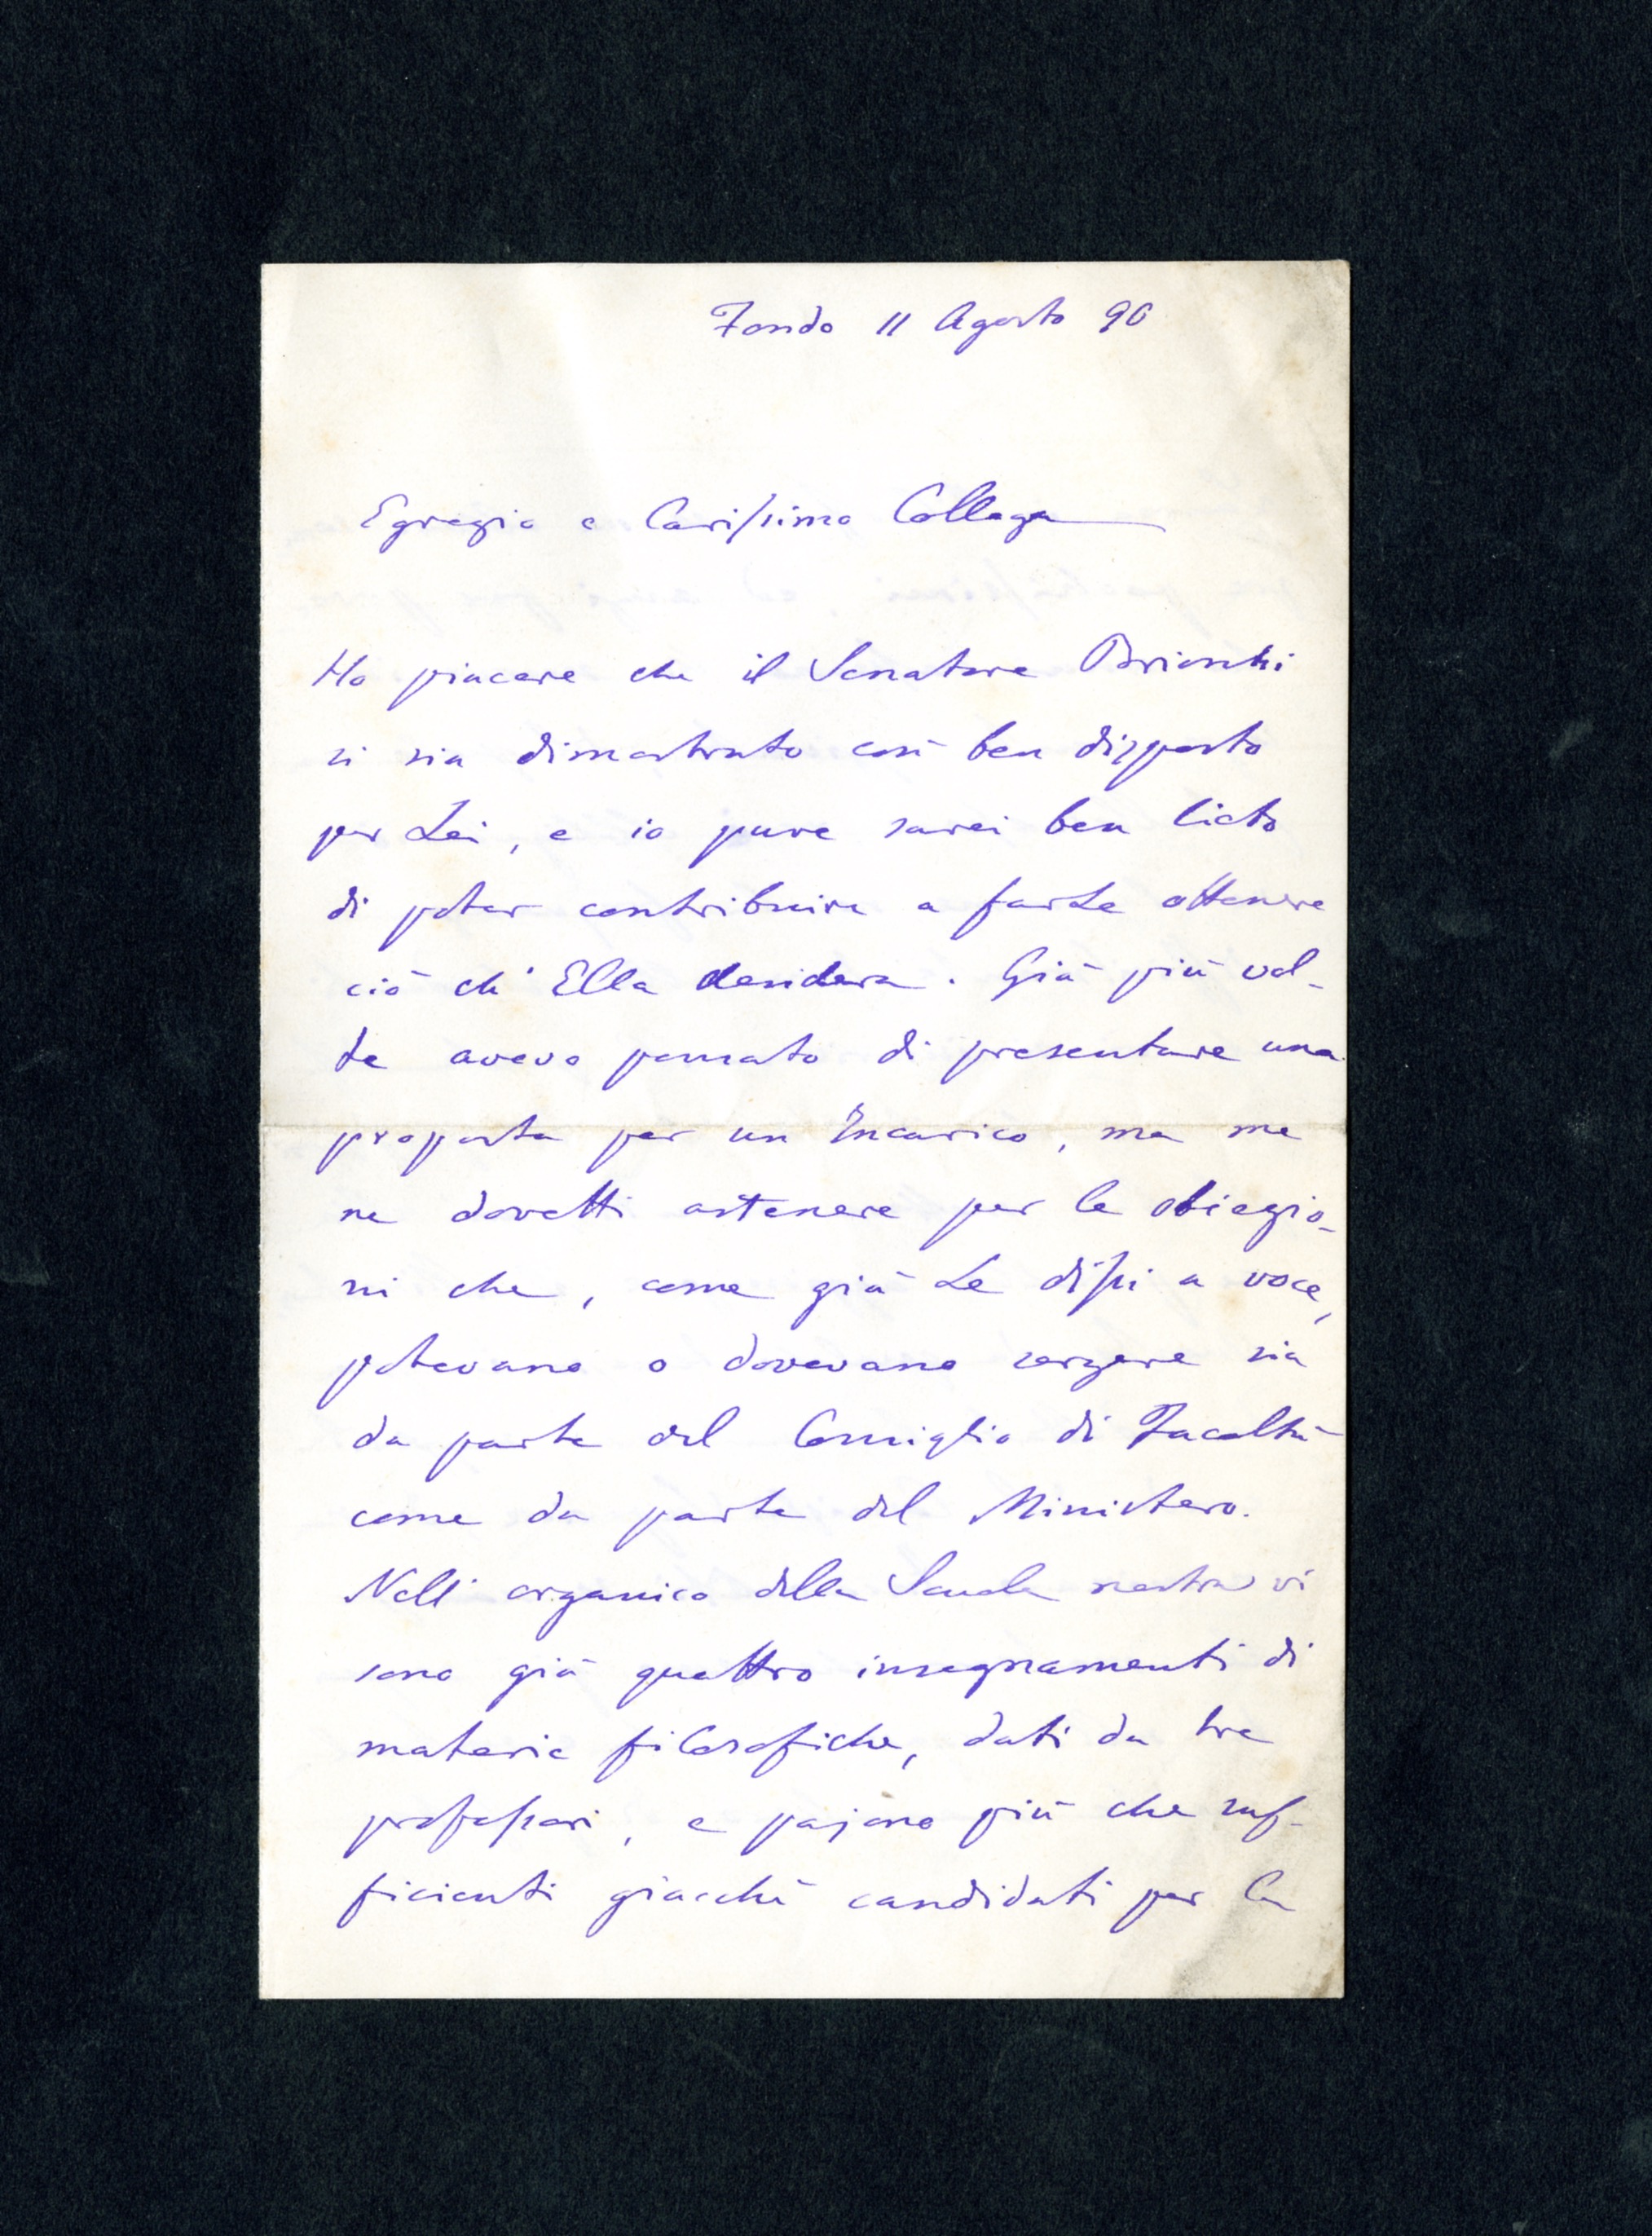 Fondo 11 Agosto 90
Egregio e Carissimo Collega
Ho piacere che il Senatore Brioschi
si sia dimostrato così ben disposto
per Lei, e io pure sarei ben lieto
di poter contribuire a farLe ottenere
ciò ch' Ella desidera. Già più vol-
te avevo pensato di presentare una
proposta per un Incarico, ma me
ne dovetti astenere per le obiezio-
ni che, come già Le dissi a voce,
potevano o dovevano sorgere sia
da parte del Consiglio di Facoltà
come da parte del Ministero.
Nell' organico della Scuola nostra vi
sono già quattro insegnamenti di
materie filosofiche, dati da tre
professori, e pajono più che suf-
ficienti giacchè candidati per la